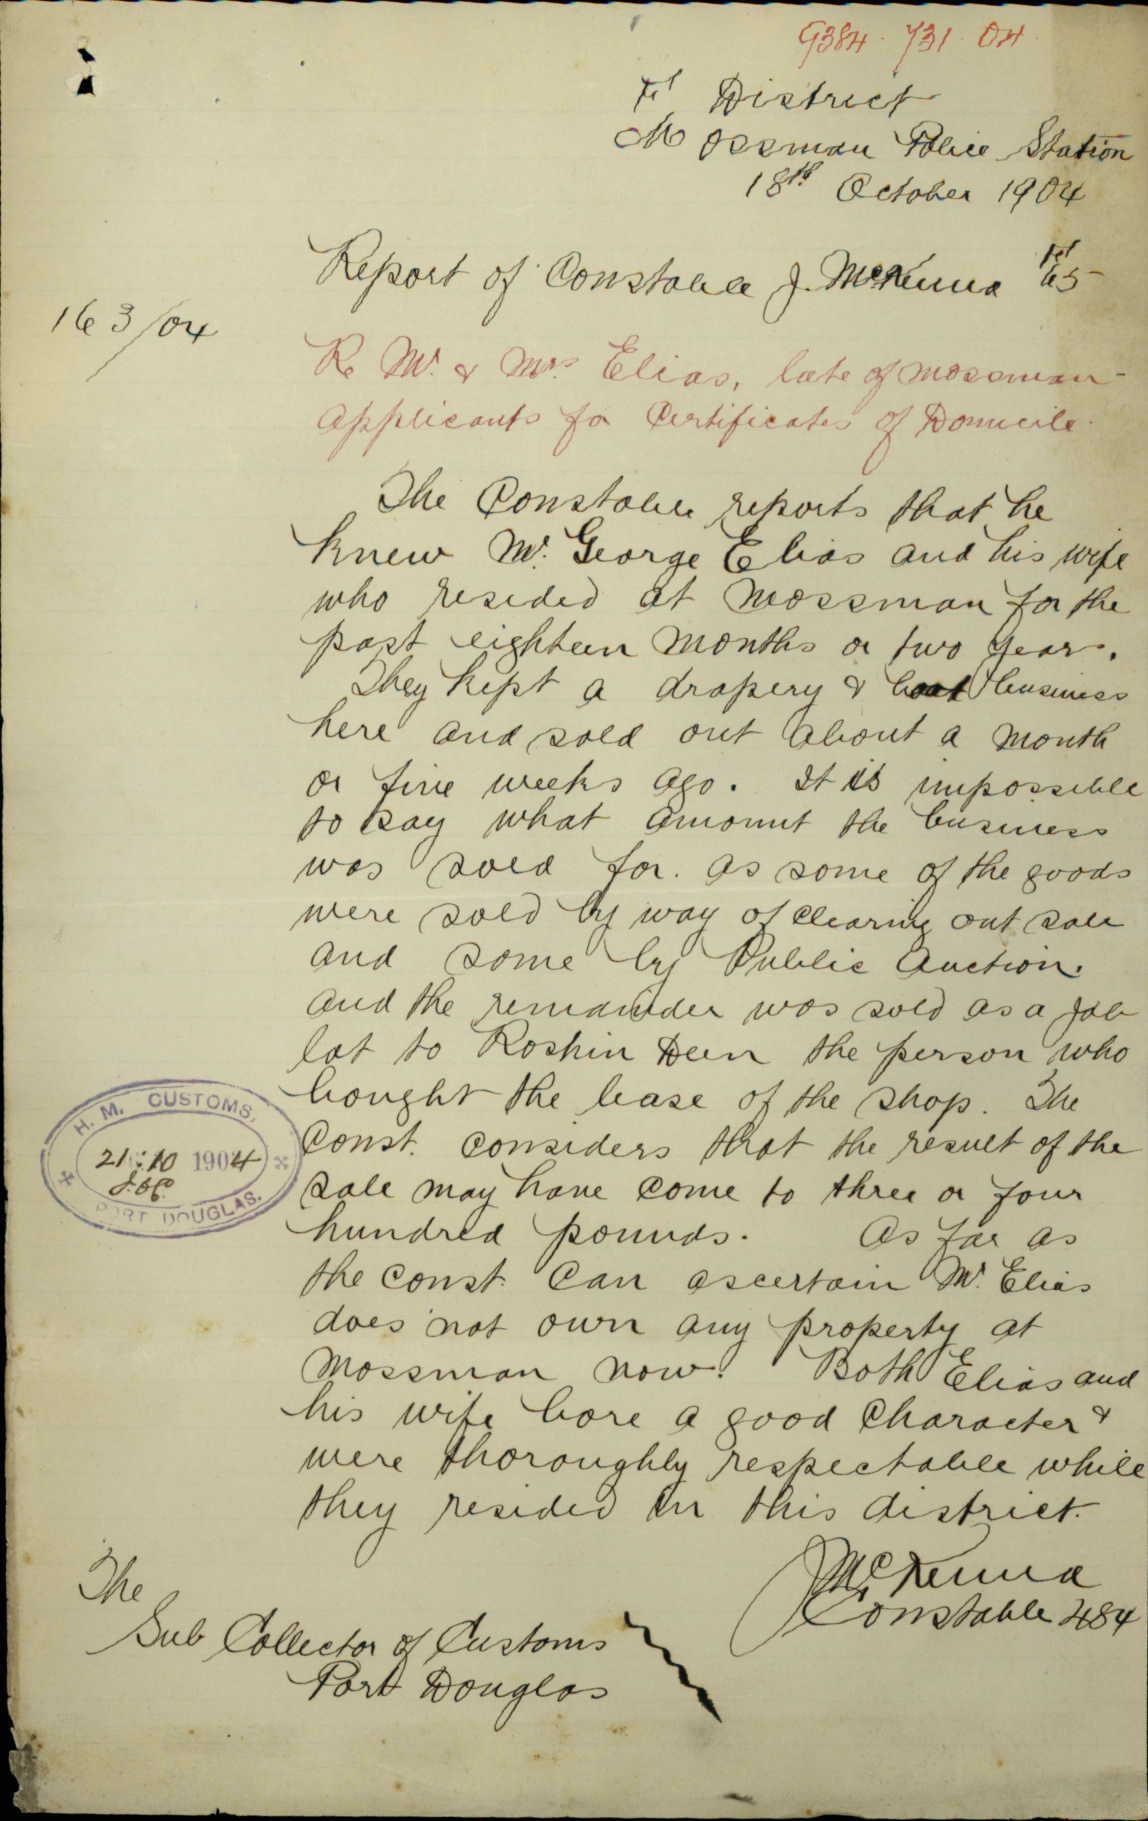 G384. 731. 04
District
Mossman Police Station
18th October 1904
Report of Constable J. McKenna
163/04
Re Mr. & Mrs Elias, late of Mossman
applicants for Certificates of Domicile.
The Constable reports that he
knew Mr. George Elias and his wife
who resided at Mossman for the
past eighteen months or two years.
They kept a drapery & boot business
here and sold out about a month
or five weeks ago. It is impossible
to say what amount the business
was sold for. as some of the goods
were sold by way of clearing out sale
and some by Public Auction.
and the remainder was sold as a job
lot to Roshin Deen the person who
bought the lease of the shop. The
Const. considers that the result of the
sale may have come to three or four
hundred pounds. As far as
the Const. can ascertain Mr. Elias
does not own any property at
Mossman now. Both Elias and
his wife bore a good character &
were thoroughly respectable while
they resided in this district.
J McKenna
Constable 484
H. M. CUSTOMS,
21:10 1904
PORT DOUGLAS.
The
Sub Collector of Customs
Port Douglas